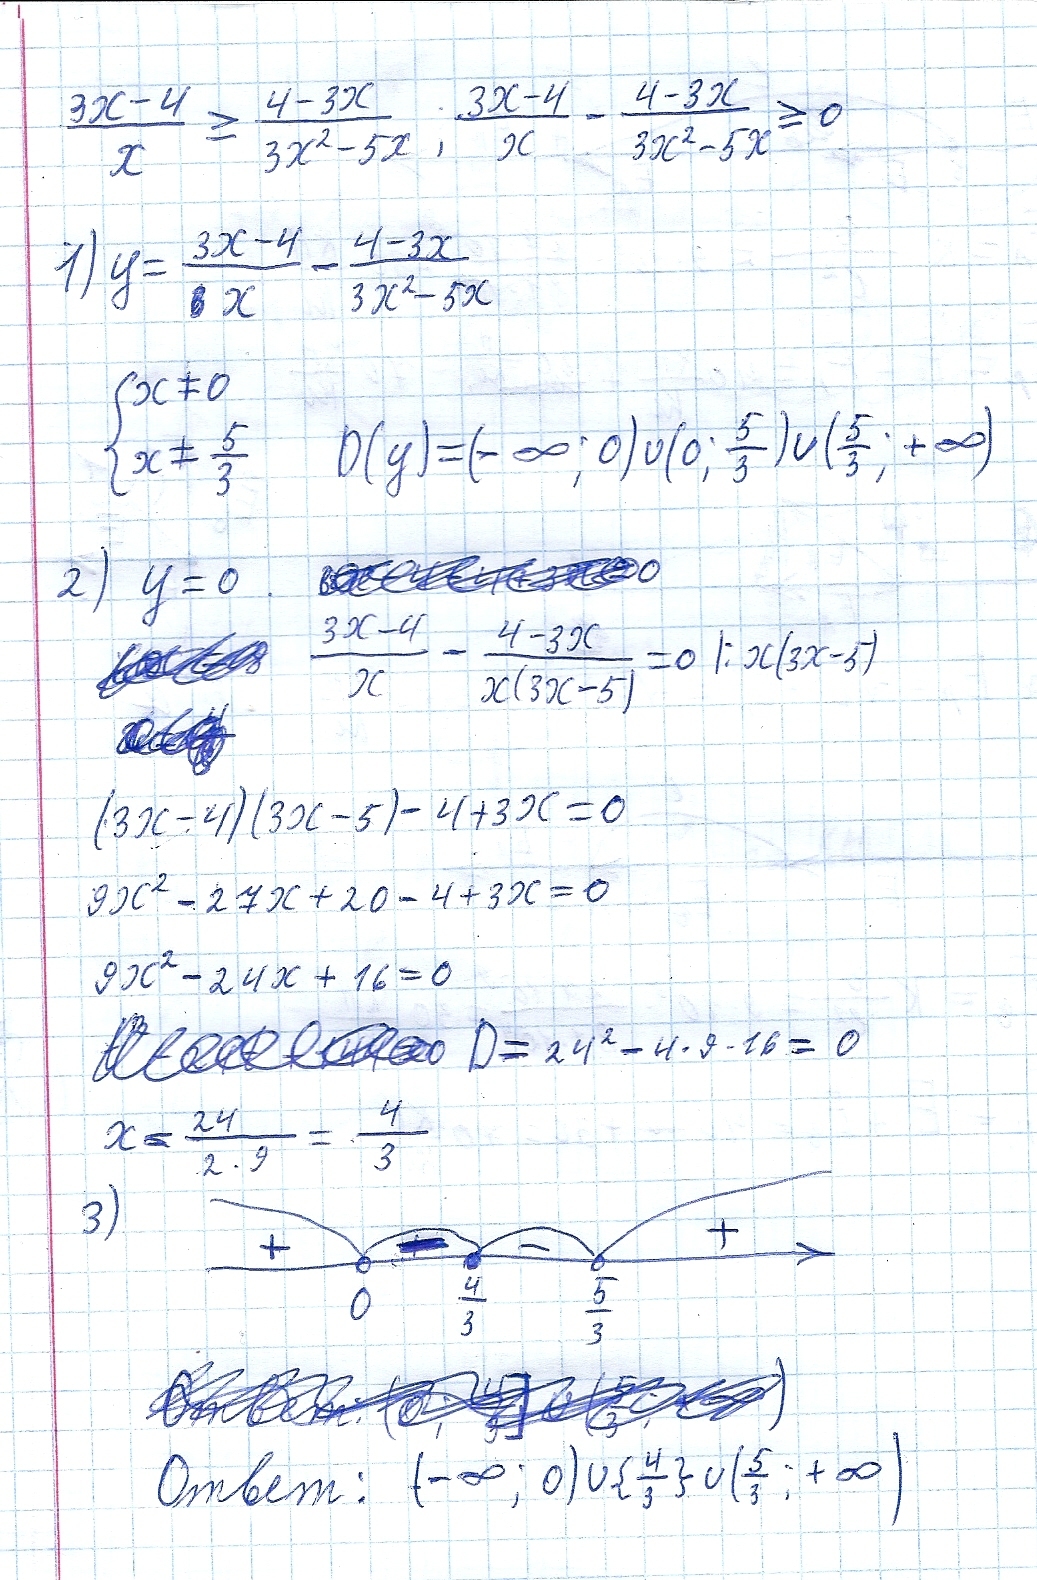 (3x-4)/x ≥ (4-3x)/(3x²-5x), (3x-4)/x - (4-3x)/(3x²-5x) ≥ 0
1) y = (3x-4)/x - (4-3x)/(3x²-5x)
{x ≠ 0
{x ≠ 5/3 D(y)=(-∞; 0)∪(0; 5/3)∪(5/3; +∞)
2) y=0.
(3x-4)/x - (4-3x)/(x(3x-5)) = 0 |: x(3x-5)
(3x-4)(3x-5)-4+3x=0
9x²-27x+20-4+3x=0
9x²-24x+16=0
D=24²-4·9·16=0
x = 24/(2·9) = 4/3
3)
+ - - +
0 4/3 5/3
Ответ: (-∞; 0)∪{4/3}∪(5/3; +∞)